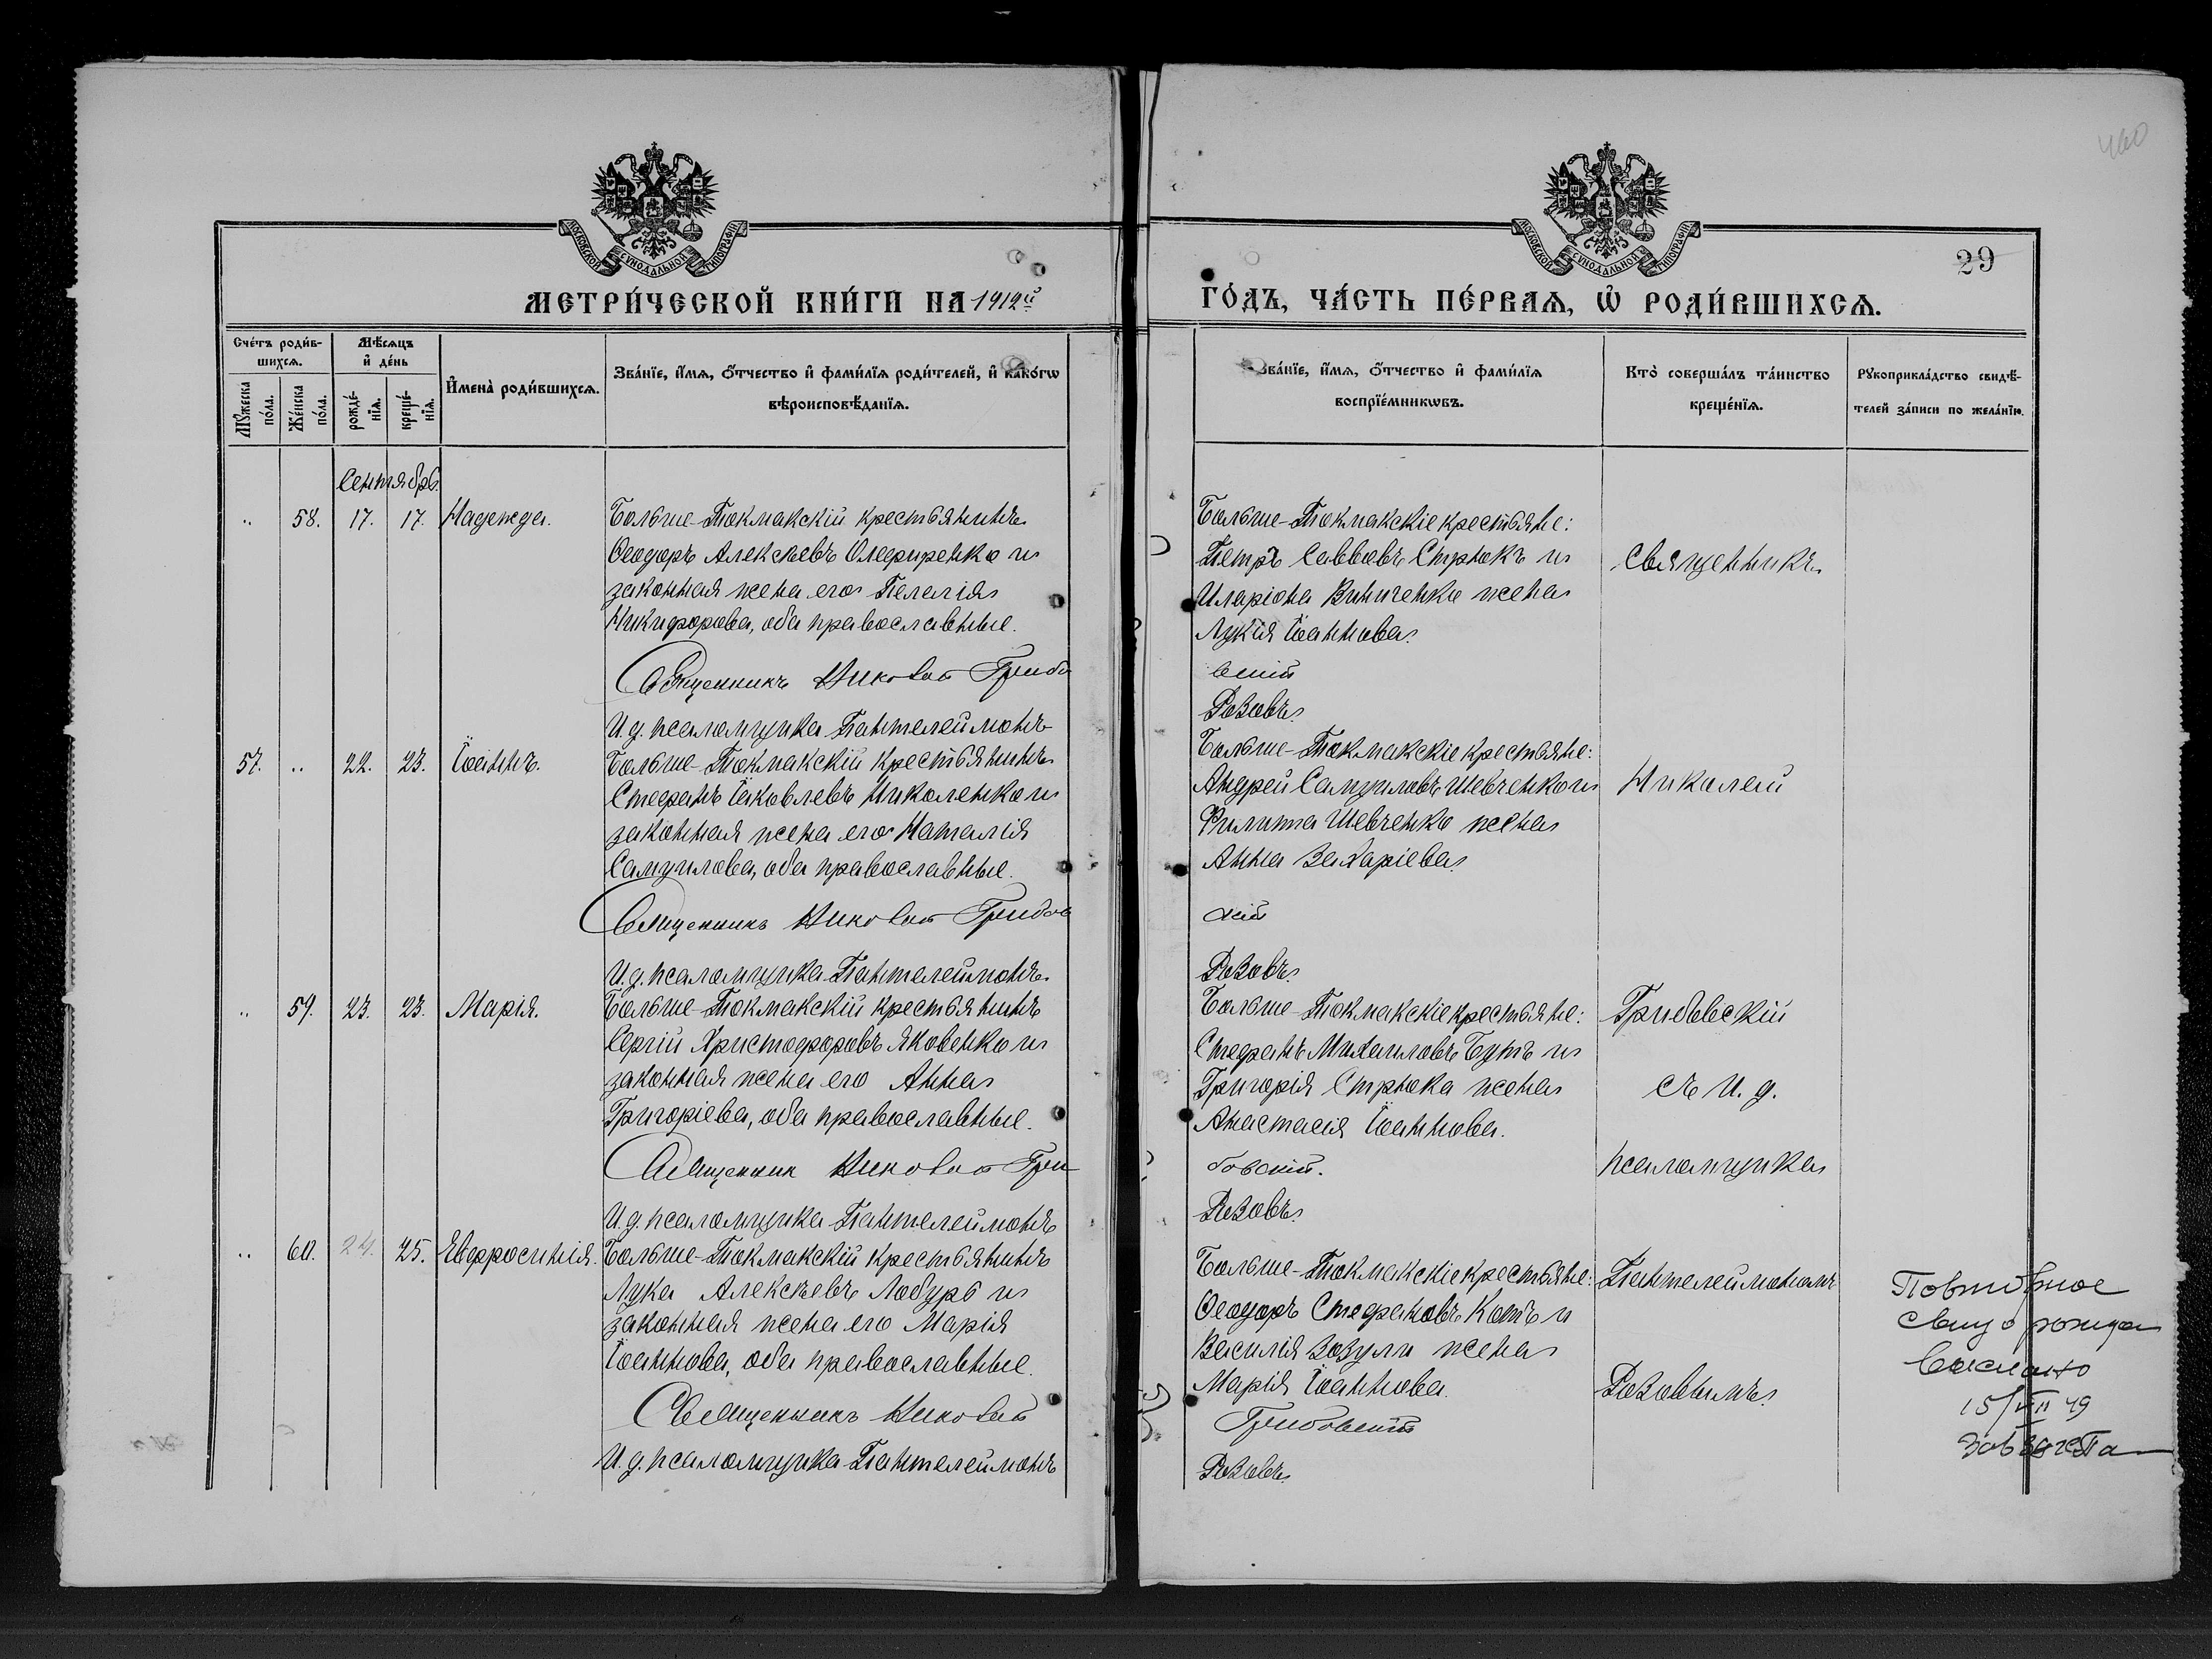 460
МОСКОВСКОЙ СѴНОДАЛЬНОЙ ТИПОГРАФІИ
МОСКОВСКОЙ СѴНОДАЛЬНОЙ ТИПОГРАФІИ
29
МЕТРИ́ЧЕСКОЙ КНИ́ГИ НА 1912й
ГО́ДЪ, ЧА́СТЬ ПЕ́РВАѦ, Ѡ҆ РОДИ́ВШИХСѦ.
Сче́тъ роди́в-
шихсѧ.
Мѣ́сѧцъ
и҆ де́нь
Мꙋ́жеска
по́ла.
Же́нска
по́ла.
рожде́-
нїѧ.
креще́-
нїѧ.
И҆мена̀ роди́вшихсѧ.
Зва́нїе, и҆́мѧ, ѻ҆́тчество и҆ фами́лїѧ роди́телей, и҆ како́гѡ
вѣроисповѣ́данїѧ.
Зва́нїе, и҆́мѧ, ѻ҆́тчество и҆ фами́лїѧ
воспрїе́мникѡвъ.
Кто̀ соверша́лъ та́инство
креще́нїѧ.
Рꙋкоприкла́дство свидѣ́-
телей за́писи по жела́нїю.
Сентябрь
„ 58. 17. 17. Надежда.
Больше-Токмакскій крестьянинъ
Ѳеодоръ Алексѣевъ Олефиренко и
законная жена его Пелагія
Никифорова, оба православные.
Священникъ Николай Грибо
И. д. псаломщика Пантелеймонъ
Больше-Токмакскіе крестьяне:
Петръ Саввовъ Стрюкъ и
Иларіона Винниченко жена
Лукія Іоаннова.
вскій
Розовъ.
57. „ 22. 23. Іоаннъ.
Больше-Токмакскій крестьянинъ
Стефанъ Іаковлевъ Николенко и
законная жена его Наталія
Самуилова, оба православные.
Священникъ Николай Грибов
И. д. псаломщика Пантелеймонъ
Больше-Токмакскіе крестьяне:
Андрей Самуиловъ Шевченко и
Филиппа Шевченко жена
Анна Захаріева.
скій
Розовъ.
„ 59. 23. 23. Марія.
Больше-Токмакскій крестьянинъ
Сергій Христофоровъ Яковенко и
законная жена его Анна
Григоріева, оба православные.
Священник Николай Гри
И. д. псаломщика Пантелеймонъ
Больше-Токмакскіе крестьяне:
Стефанъ Михаиловъ Бутъ и
Григорія Стрюка жена
Анастасія Іоаннова.
бовскій.
Розовъ.
„ 60. 24. 25. Евфросинія.
Больше-Токмакскій крестьянинъ
Лука Алексѣевъ Лобурь и
законная жена его Марія
Іоаннова, оба православные.
Священникъ Николай
И. д. псаломщика Пантелеймонъ
Больше-Токмакскіе крестьяне:
Ѳеодоръ Стефановъ Котъ и
Василія Зозули жена
Марія Іоаннова.
Грибовскій
Розовъ.
Священникъ
Николай
Грибовскій
съ И. д.
псаломщика
Пантелеймономъ
Розовымъ.
Повторное
свид о рожден
выслано
15/VII 49